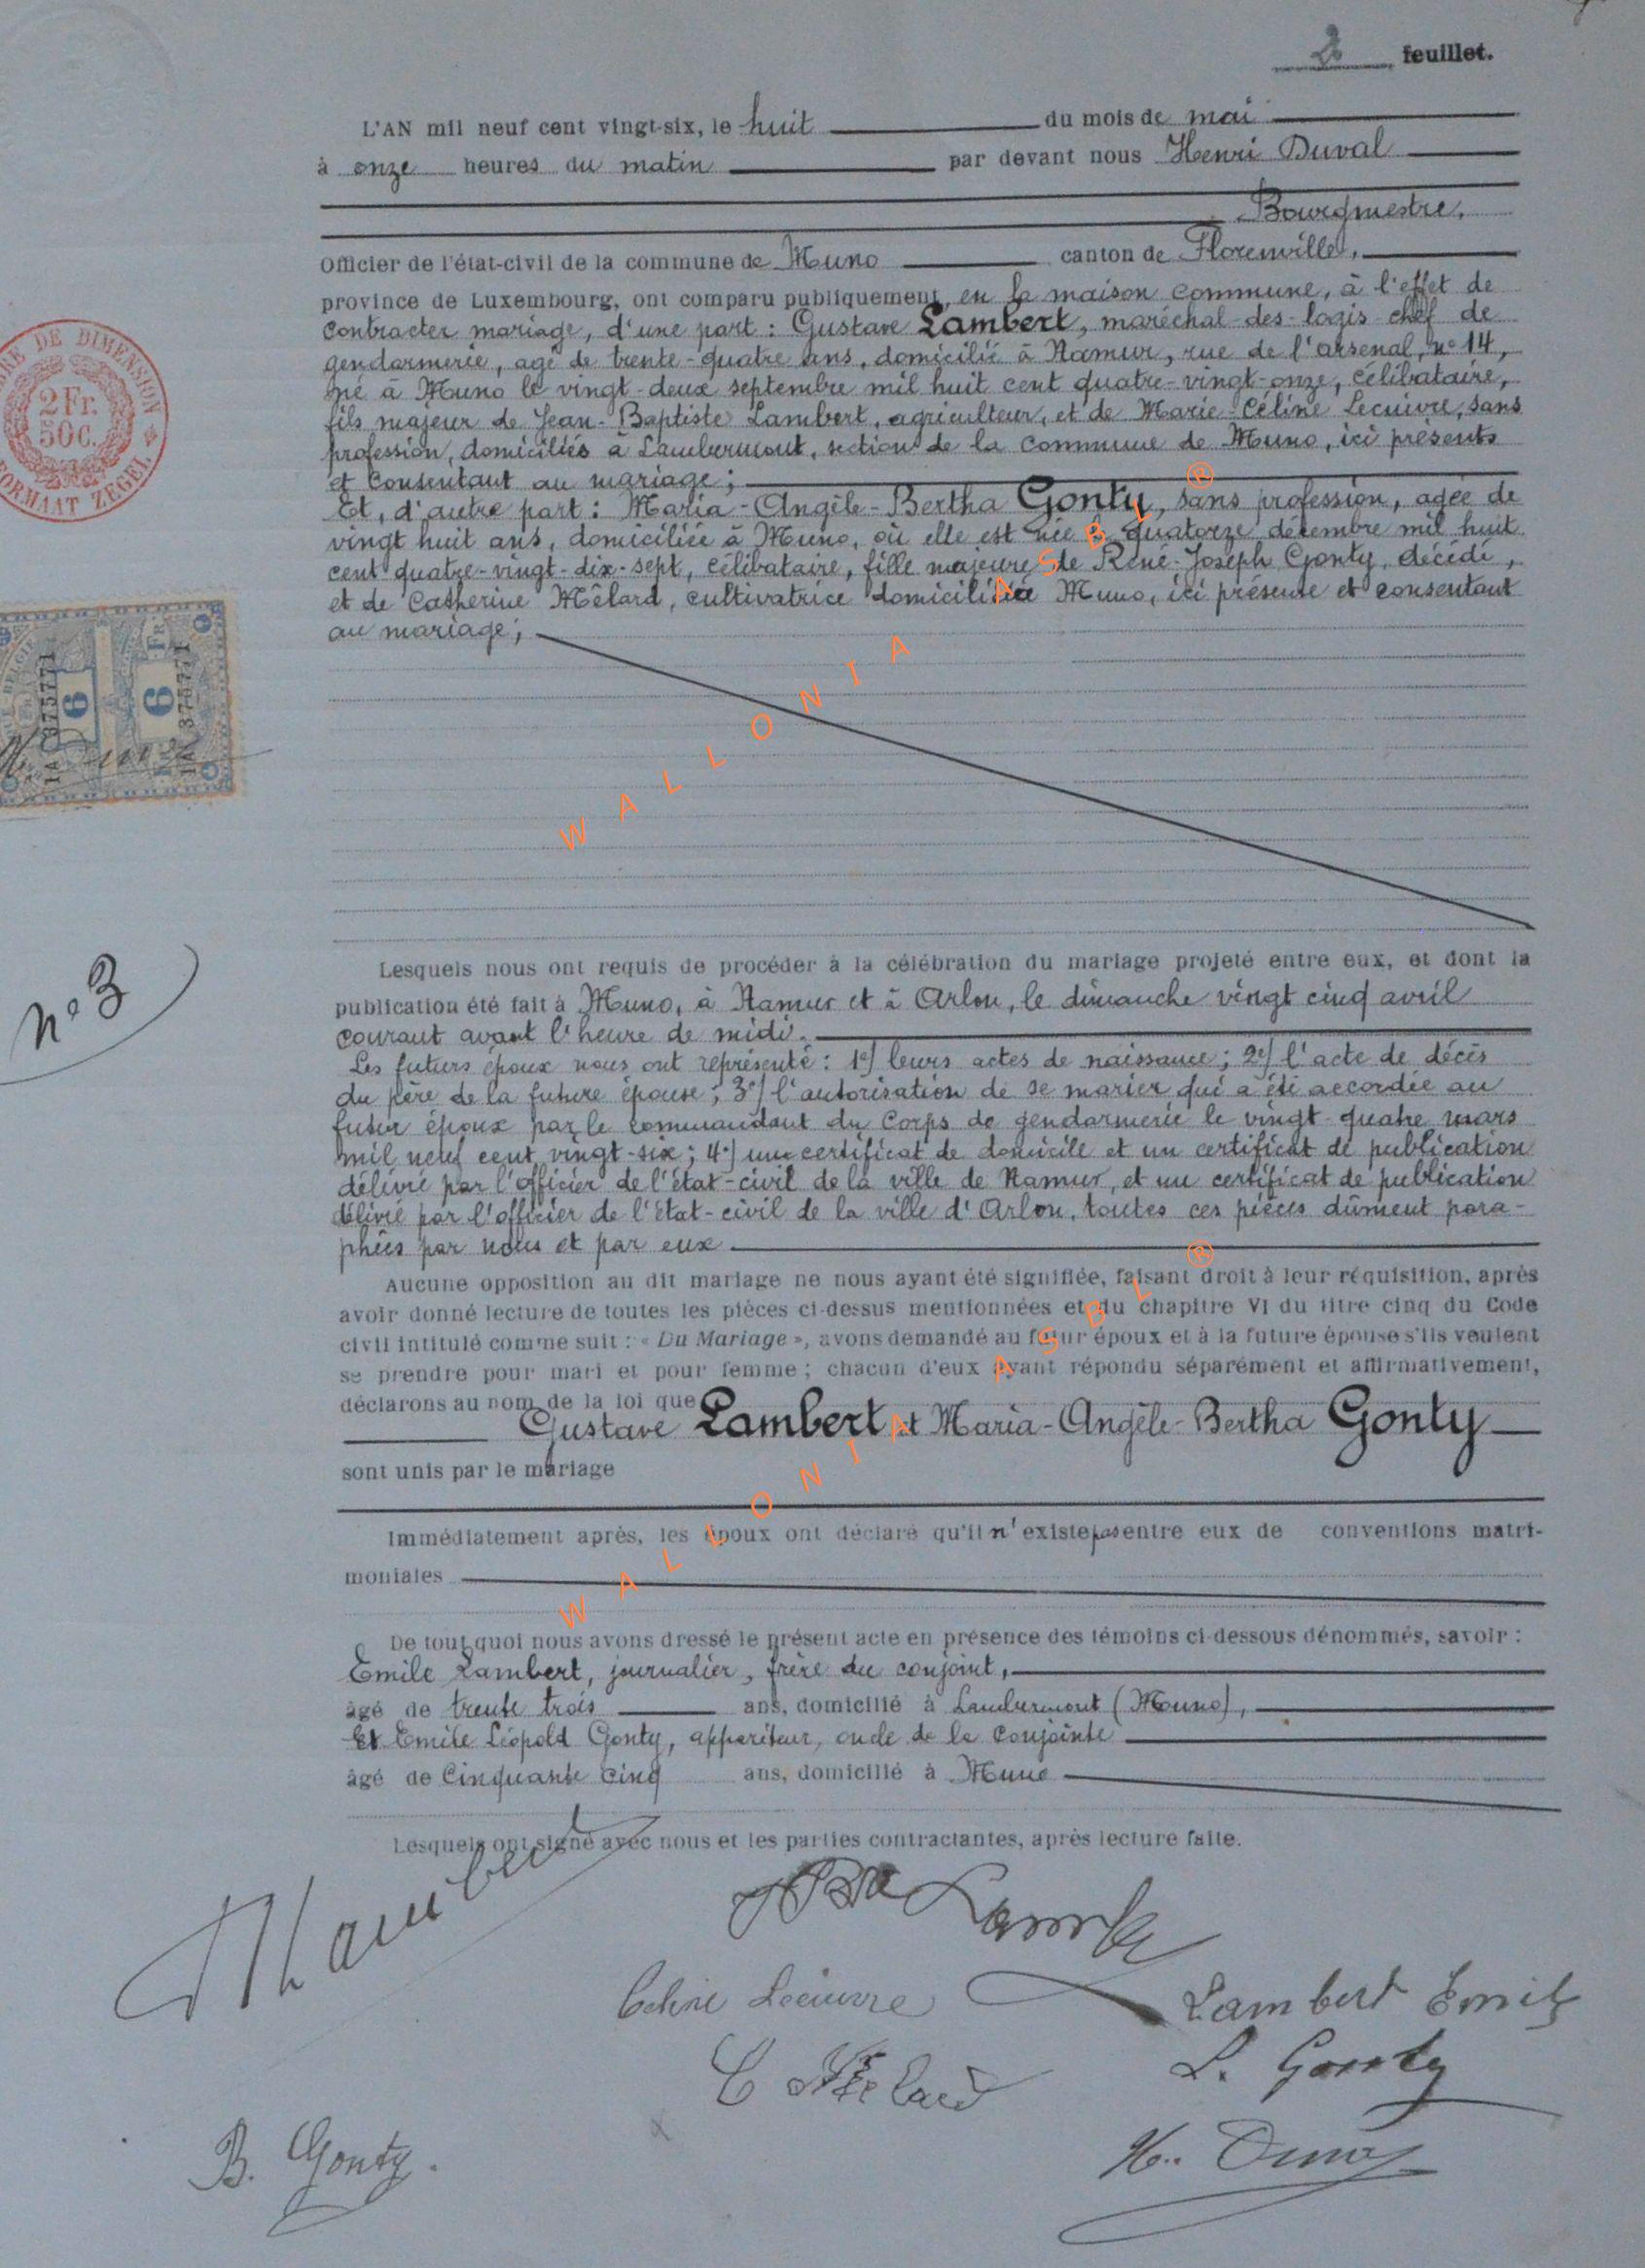 2 feuillet.
L'AN mil neuf cent vingt-six, le huit du mois de mai
à onze heures du matin par devant nous Henri Duval
Bourgmestre,
Officier de l'état-civil de la commune de Muno canton de Florenville,
province de Luxembourg, ont comparu publiquement, en la maison commune, à l'effet de
contracter mariage, d'une part : Gustave Lambert, maréchal-des-logis-chef de
gendarmerie, agé de trente-quatre ans, domicilié à Namur, rue de l'arsenal, n° 14,
né à Muno le vingt-deux septembre mil huit cent quatre-vingt-onze, célibataire,
fils majeur de Jean-Baptiste Lambert, agriculteur, et de Marie-Céline Lecuivre, sans
profession, domiciliés à Lambermont, section de la commune de Muno, ici présents
et consentant au mariage ;
Et, d'autre part : Maria-Angèle-Bertha Gonty, sans profession, agée de
vingt huit ans, domiciliée à Muno, où elle est née le quatorze décembre mil huit
cent quatre-vingt-dix-sept, célibataire, fille majeure de René-Joseph Gonty, décédé,
et de Catherine Mélard, cultivatrice domiciliée à Muno, ici présente et consentant
au mariage ;
TIMBRE DE DIMENSION
2 Fr.
50 C.
FORMAAT ZEGEL
6 6
1A 375771
WALLONIA ASBL ®
n° 3
Lesquels nous ont requis de procéder à la célébration du mariage projeté entre eux, et dont la
publication été fait à Muno, à Namur et à Arlon, le dimanche vingt cinq avril
courant avant l'heure de midi.
Les futurs époux nous ont représenté : 1°) leurs actes de naissance ; 2°) l'acte de décès
du père de la future épouse ; 3°) l'autorisation de se marier qui a été accordée au
futur époux par le commandant du Corps de gendarmerie le vingt-quatre mars
mil neuf cent vingt-six ; 4°) un certificat de domicile et un certificat de publication
délivré par l'officier de l'état-civil de la ville de Namur, et un certificat de publication
délivré par l'officier de l'état-civil de la ville d'Arlon, toutes ces pièces dûment para-
phées par nous et par eux
Aucune opposition au dit mariage ne nous ayant été signifiée, faisant droit à leur réquisition, après
avoir donné lecture de toutes les pièces ci-dessus mentionnées et du chapitre VI du titre cinq du Code
civil intitulé comme suit : « Du Mariage », avons demandé au futur époux et à la future épouse s'ils veulent
se prendre pour mari et pour femme ; chacun d'eux ayant répondu séparément et affirmativement,
déclarons au nom de la loi que
Gustave Lambert et Maria-Angèle-Bertha Gonty
sont unis par le mariage
WALLONIA ASBL ®
Immédiatement après, les époux ont déclaré qu'il n'existe pas entre eux de conventions matri-
moniales
De tout quoi nous avons dressé le présent acte en présence des témoins ci-dessous dénommés, savoir :
Emile Lambert, journalier, frère du conjoint,
âgé de trente trois ans, domicilié à Lambermont (Muno),
Et Emile Léopold Gonty, appariteur, oncle de la conjointe
âgé de Cinquante cinq ans, domicilié à Muno
Lesquels ont signé avec nous et les parties contractantes, après lecture faite.
Lambert
Lambert
Celine Lecuivre
Lambert Emile
C Mélard
L. Gonty
B. Gonty.
H. Duval